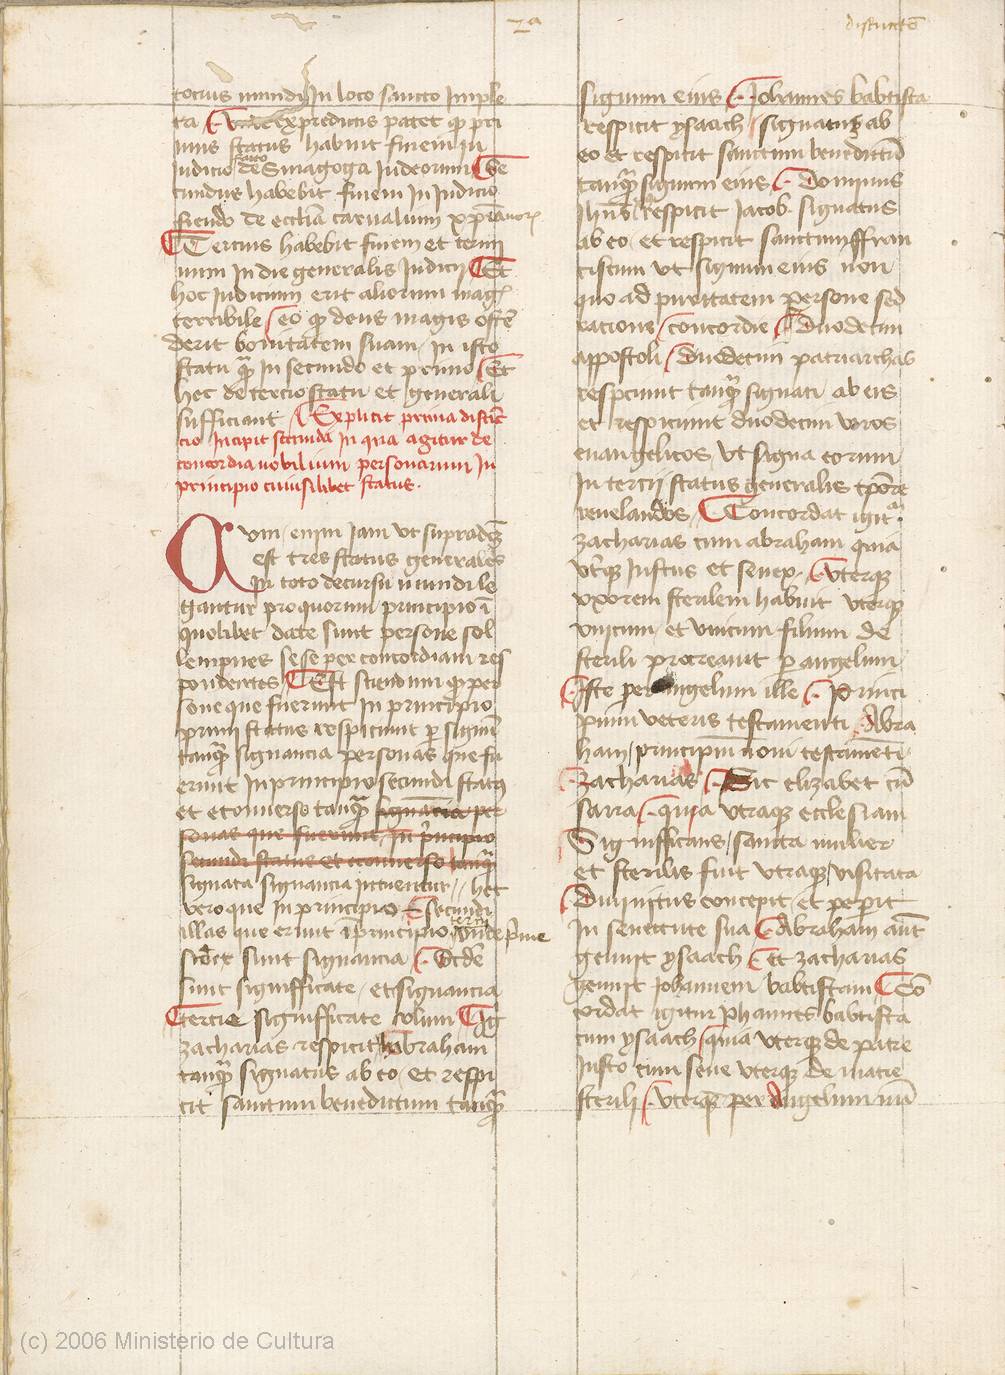 2a
distinctio
tocius mundi In loco sancto Imple
ta expredictis patet qp pri
mus status habuit finem in
Iudicio facto de Sinagoga Iudeorum Se
cundus habebit finem In Iudicio
fiendo de ecclia carnalium xpianorum
Tercius habebit finem et termi
num In die generalis Iudicij Et
hoc Iudicium erit aliorum mag
terribile eo qp deus magis osten
derit bonitatem suam In isto
statu qm In secundo et primo Et
hec de tercio statu et generali
sufficiant Explicit prima distinc
cio Incipit secunda In qua agitur de
concordia nobilium personarum In
principio cuiuslibet status
Cum enim Iam ut supradcm
est tres status generales
In toto decursu mundi le
gantur pro quorum principio i
quolibet date sunt persone sol
lempnes sese per concordiam res
pondentes Est sciendum qp per
sone que fuerunt In principio
primi status respiciunt p signum
tanqm signancia personas que fu
erunt In principio secundi status
et econuerso tanqm signancia per
sonas que fuerunt In principio
secundi status et econuerso tanqm
signata signancia intuentur hec
vero que In principio secundi
illas que erunt i principio tercij Unde prime
sicet sunt signancia Secunde
sunt signifficate et signancia
tercie signifficate solum Ig
zacharias respicit Abraham
tanqm signatus ab eo et respi
cit sanctum benedictum tanqm
signum eius Iohannes babtista
respicit ysaach signatus ab
eo et respicit sanctum benedictum
tanqm signum eius Dominus
Ihus respicit Iacob signatus
ab eo et respicit sanctum ffran
ciscum ut signum eius non
quo ad puritatem persone sed
racione concordie Duodecim
appostoli Duodecim patriarchas
respiciunt tanqm signati ab eis
et respiciunt duodecim viros
euangelicos ut signa eorum
In tercij status generalis tpore
reuelandos Concordat igitur
zacharias cum abraham quia
uterqp Iustus et senex uterqp
vxorem sterilem habuit uterqp
vnicum et vnicum filium de
sterili procreauit p angelum
Iste per angelum ille Princi
pium veteris testamenti Abra
ham principium noui testamenti
zacharias Sic elizabet cum
sarra quia utraque ecclesiam
Signifficans sancta mulier
et sterilis fuit utraqp visitata
Diuinitus concepit et peperit
In senectute sua Abraham aut
genuit ysaach Et zacharias
genuit Iohannem babtistam Con
cordat igitur Iohannes babtista
cum ysaach quia uterqp de patre
Iusto cum sene uterqp de matre
sterili uterqp per Angelum nun
(c) 2006 Ministerio de Cultura